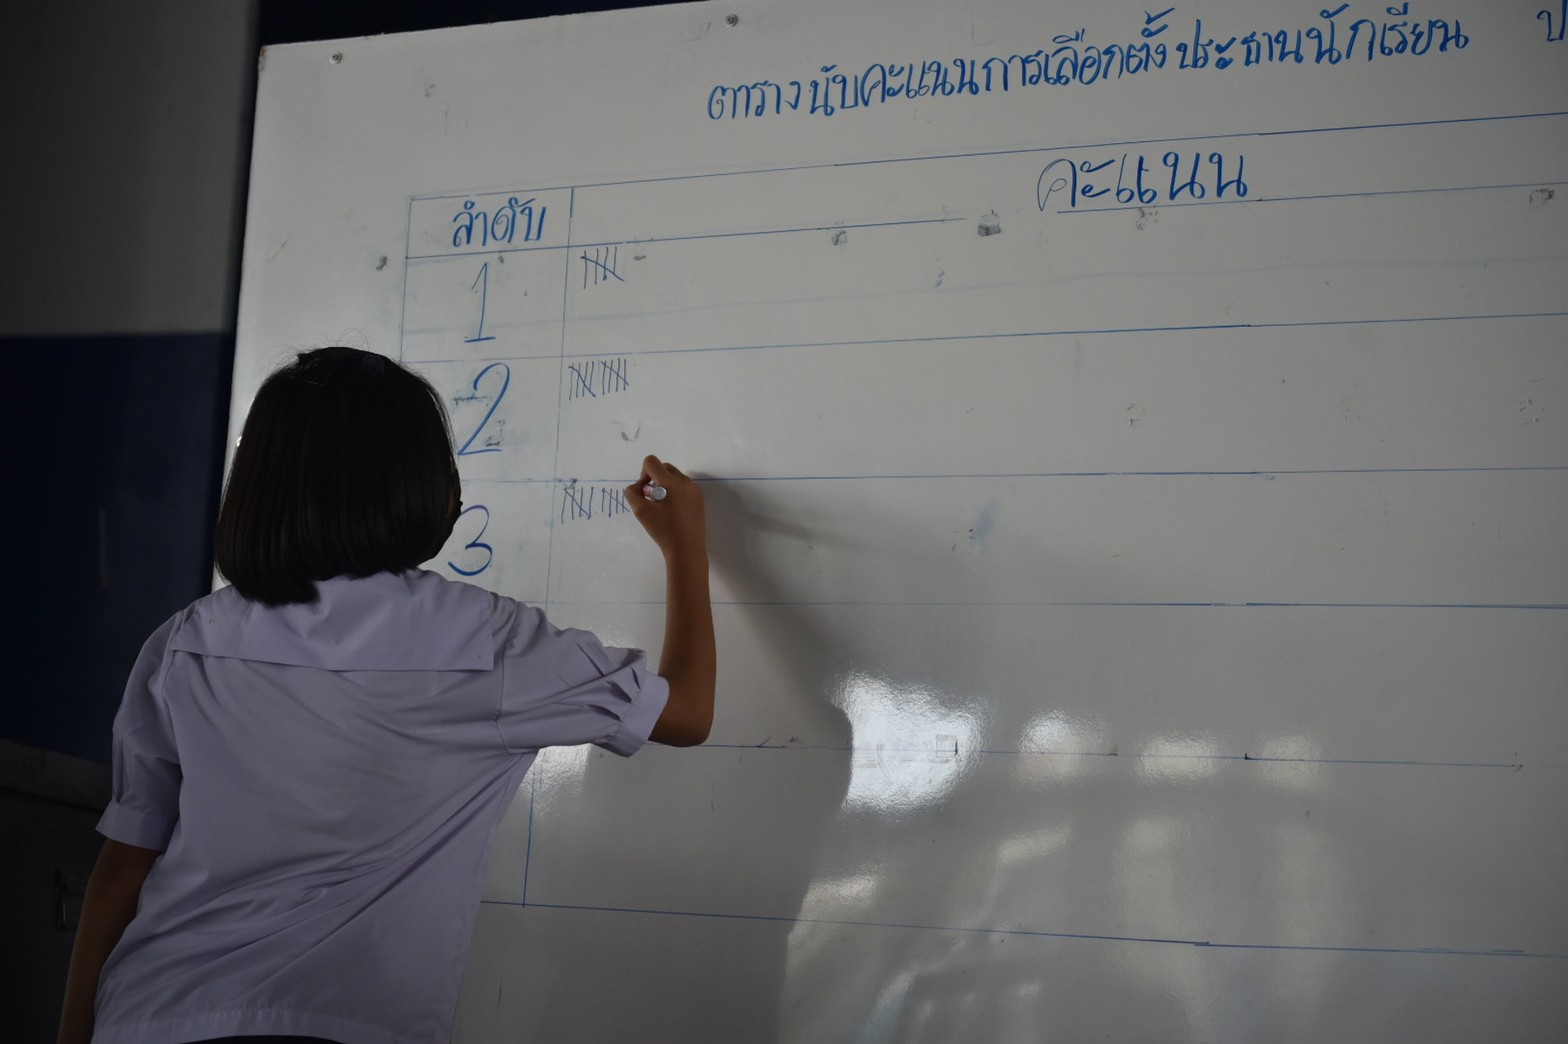 ตารางนับคะแนนการเลือกตั้งประธานนักเรียน ป
ลำดับ คะแนน
1
2
3